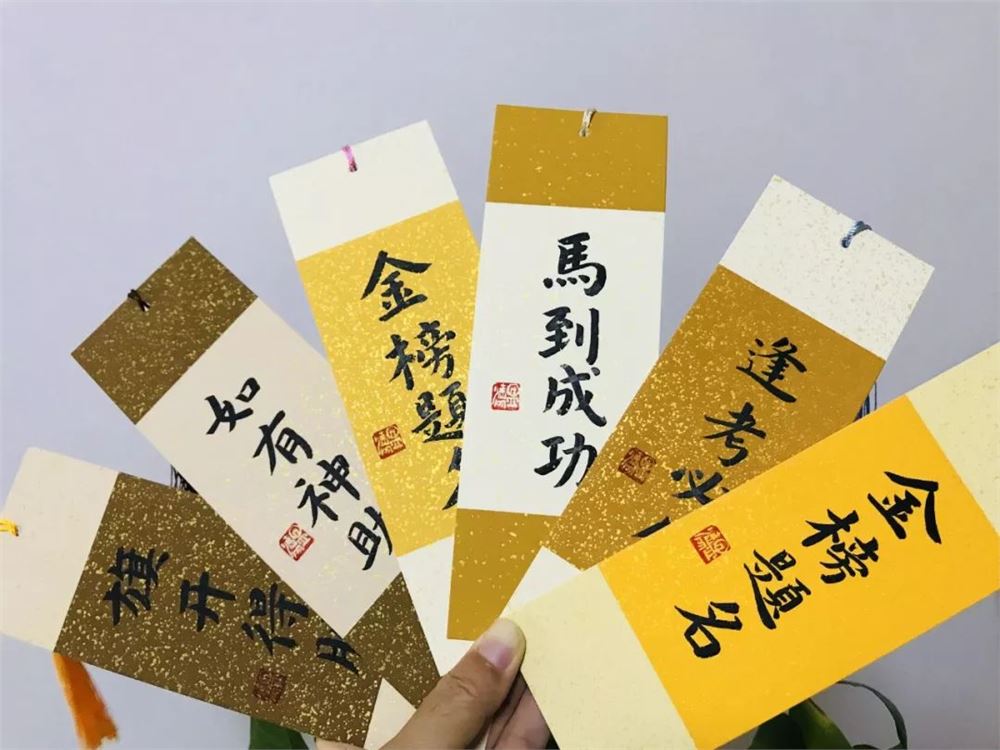 旗开得
如有神助
金榜題
馬到成功
逢考必
金榜題名